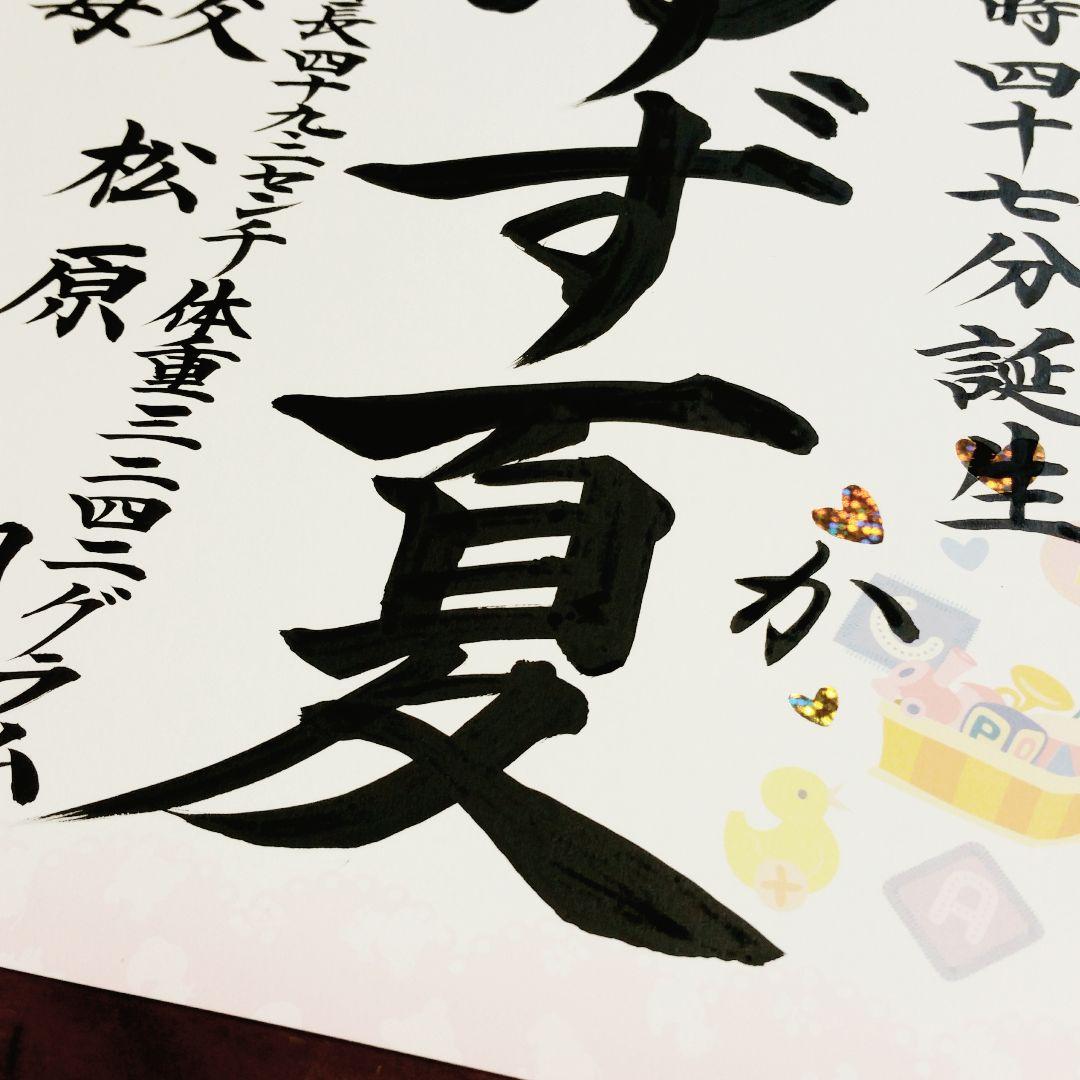 時四十七分誕生
ゆず夏
か
長四十九.二センチ 体重三二四二グラム
父
母
松原